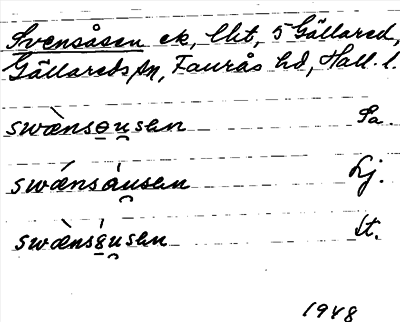 Svensåsen ek, lht, 5 Gällared,
Gällareds sn, Faurås hd, Hall. l.
swænsəu̯sen Sa.
swǽnsáu̯sen Lj.
swænsǝ́u̯sen St.
1948